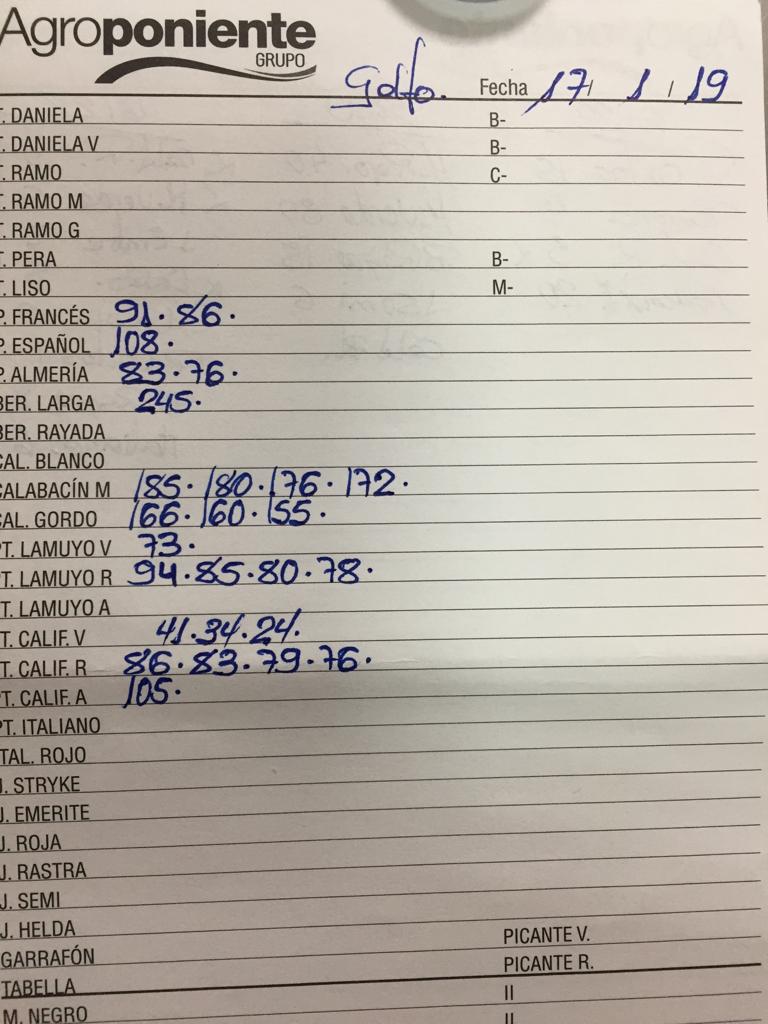 Agroponiente
GRUPO
Golfo. Fecha 17/ 1 / 19
T. DANIELA B-
T. DANIELA V B-
T. RAMO C-
T. RAMO M
T. RAMO G
T. PERA B-
T. LISO M-
P. FRANCÉS 91. 86.
P. ESPAÑOL 108.
P. ALMERÍA 83.76.
BER. LARGA 245.
BER. RAYADA
CAL. BLANCO
CALABACÍN M 185. 180. 176. 172.
CAL. GORDO 166. 160. 155.
PT. LAMUYO V 73.
PT. LAMUYO R 94.85.80.78.
PT. LAMUYO A
PT. CALIF. V 41.34.24.
PT. CALIF. R 86.83.79.76.
PT. CALIF. A 105.
PT. ITALIANO
ITAL. ROJO
J. STRYKE
J. EMERITE
J. ROJA
J. RASTRA
J. SEMI
J. HELDA
GARRAFÓN PICANTE V.
TABELLA PICANTE R.
M. NEGRO II
II